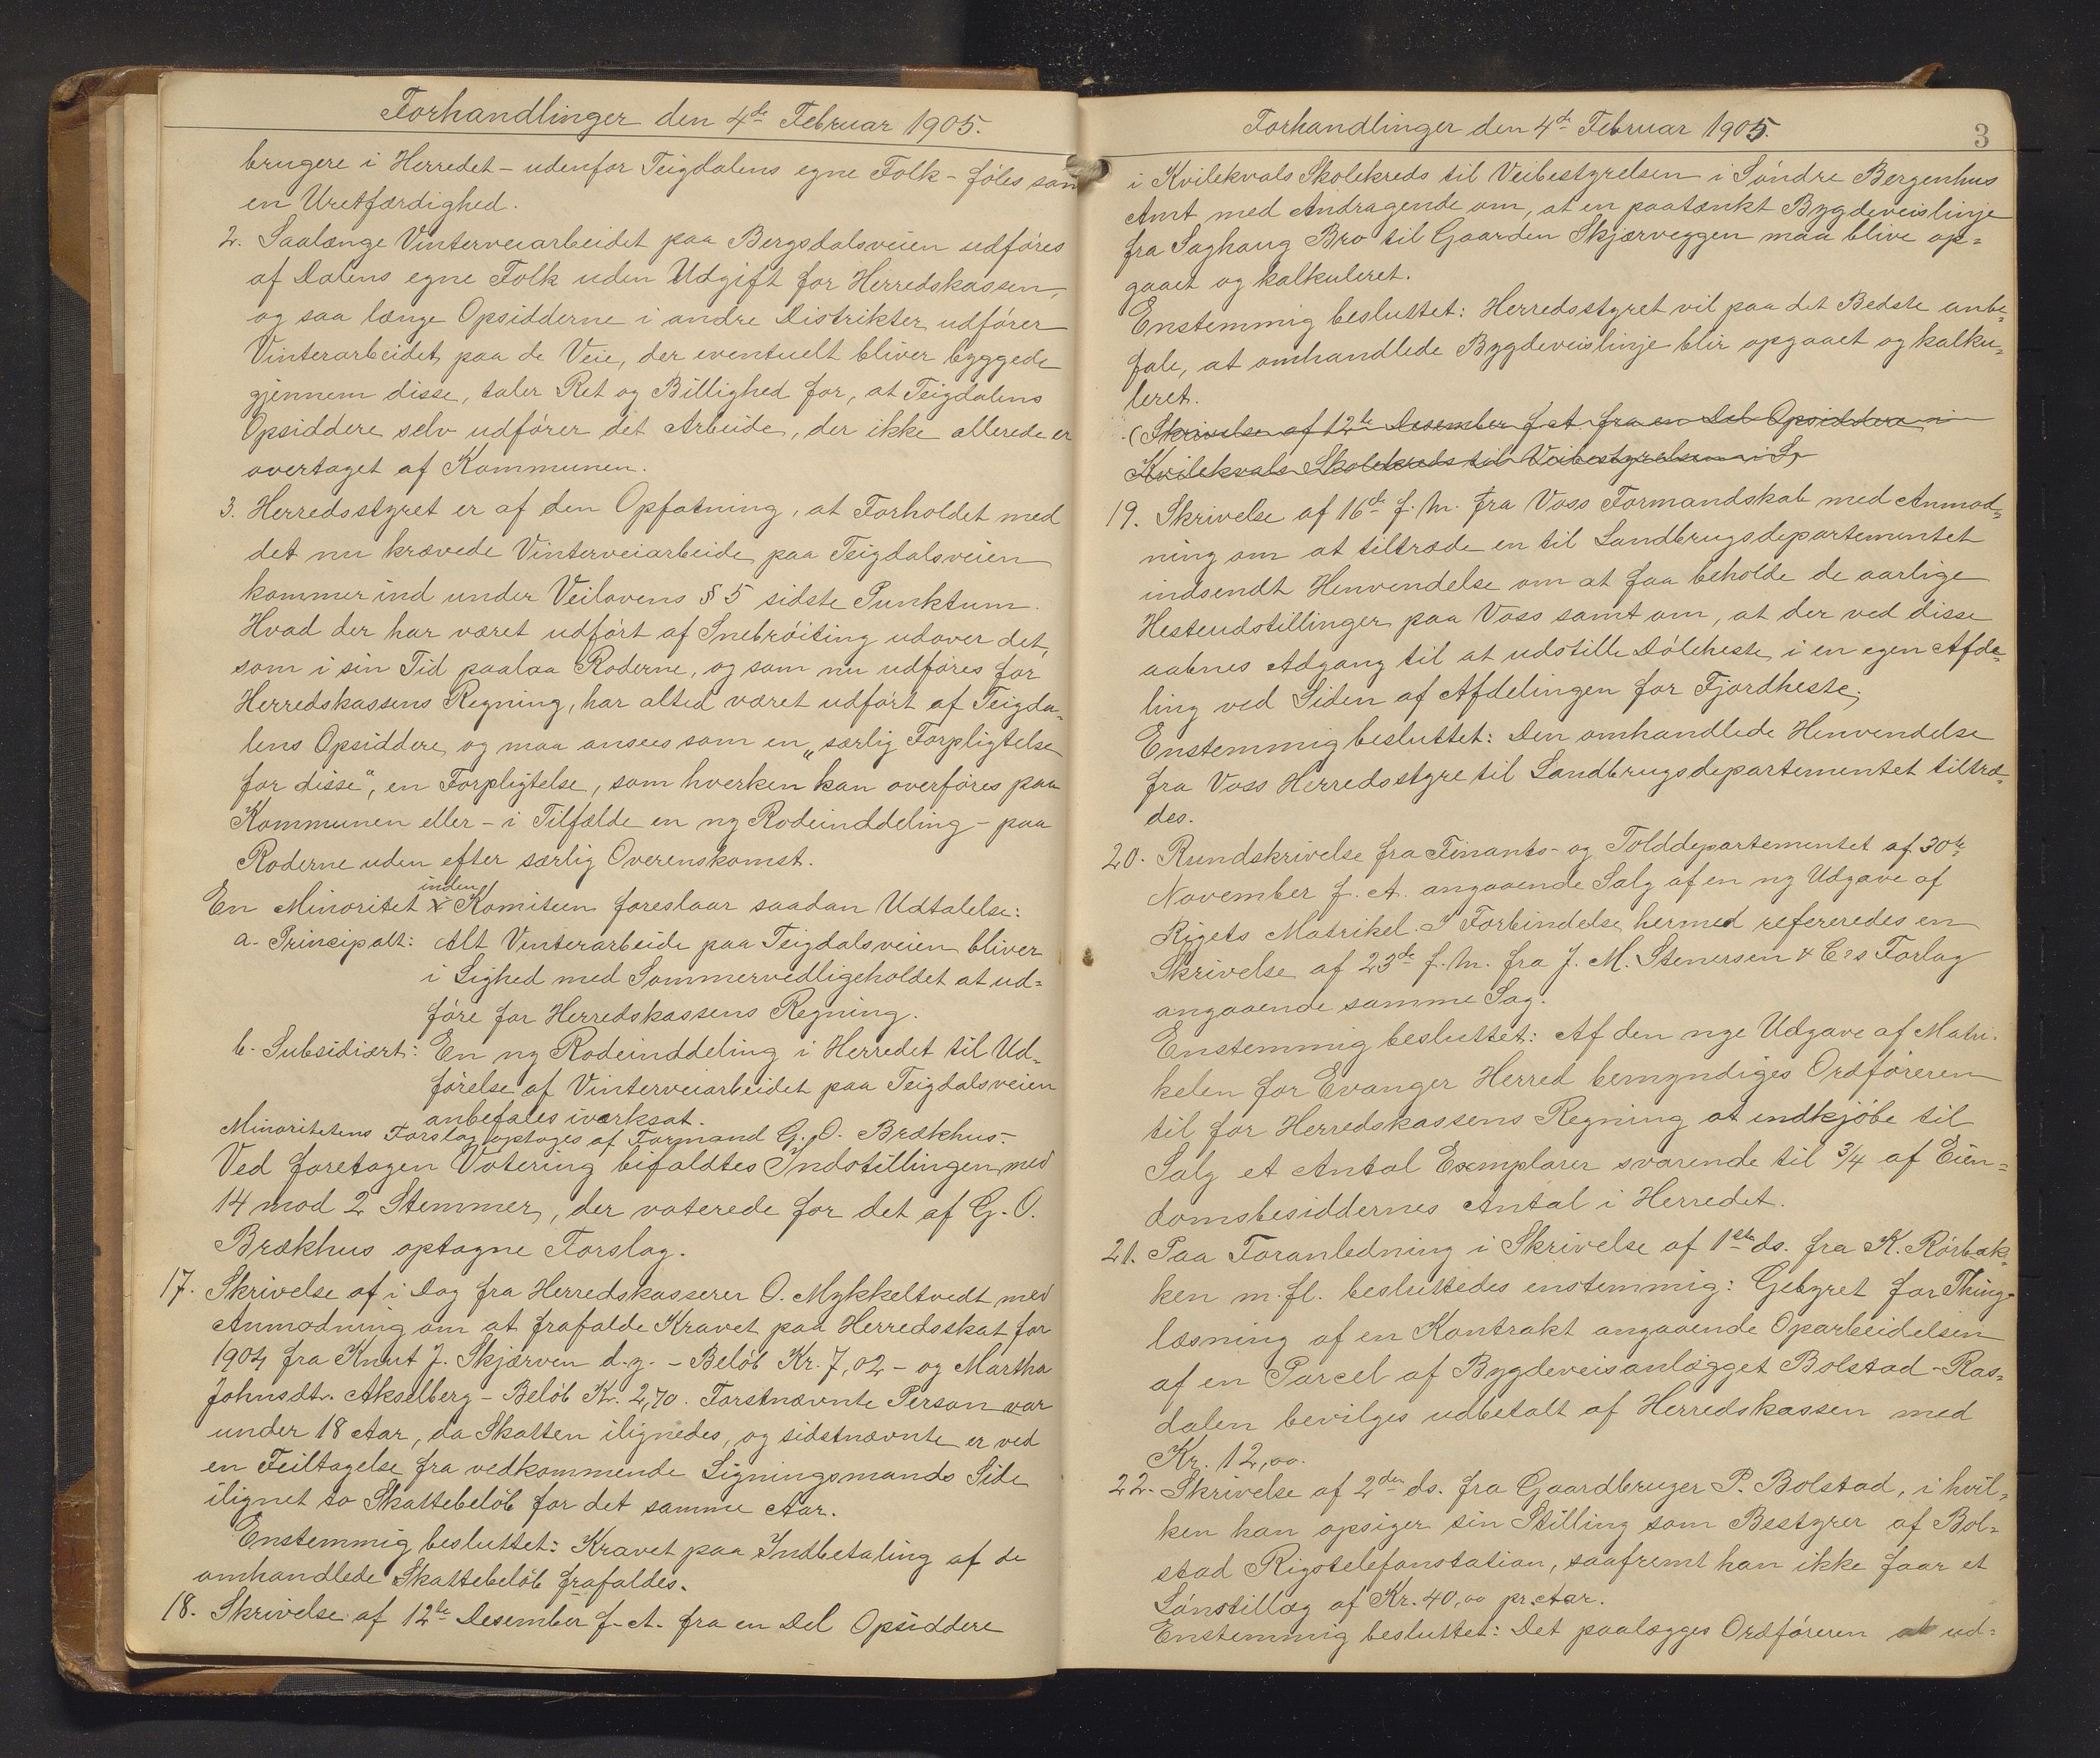 Forhandlinger den 4de Februar 1905.
brugere i Herredet - udenfor Teigdalens egne Folk - føles som
en Uretfærdighed.
2. Saalænge Vinterveiarbeidet paa Bergsdalsveien udføres
af Dalens egne Folk uden Udgift for Herredskassen,
og saa længe Opsidderne i andre Distrikter udfører
Vinterarbeidet paa de Veie, der eventuelt bliver byggede
gjennem disse, taler Ret og Billighed for, at Teigdalens
Opsiddere selv udfører det Arbeide, der ikke allerede er
overtaget af Kommunen.
3. Herredsstyret er af den Opfatning, at Forholdet med
det nu krævede Vinterveiarbeide paa Teigdalsveien
kommer ind under Veilovens § 5 sidste Punktum.
Hvad der har været udført af Snebrøiting udover det,
som i sin Tid paalaa Roderne, og som nu udføres for
Herredskassens Regning, har altid været udført af Teigda-
lens Opsiddere og maa ansees som en „særlig Forpligtelse
for disse", en Forpligtelse, som hverken kan overføres paa
Kommunen eller - i Tilfælde en ny Rodeinddeling - paa
Roderne uden efter særlig Overenskomst.
En Minoritet inden Komiteen foreslaar saadan Udtalelse:
a. Principalt: Alt Vinterarbeide paa Teigdalsveien bliver
i Lighed med Sommervedligeholdet at ud=
føre for Herredskassens Regning.
b. Subsidiært: En ny Rodeinddeling i Herredet til Ud=
førelse af Vinterveiarbeidet paa Teigdalsveien
anbefales iværksat.
Minoritetens Forslag optages af Formand G. O. Brækhus.
Ved foretagen Votering bifaldtes Indstillingen med
14 mod 2 Stemmer, der voterede for det af G. O.
Brækhus optagne Forslag.
17. Skrivelse af i Dag fra Herredskasserer O. Mykkeltvedt med
Anmodning om at frafalde Kravet paa Herredsskat for
1904 fra Knut J. Skjærven d.y. - Beløb Kr. 7,02 - og Martha
Johnsdtr. Akselberg - Beløb Kr. 2,70. Førstnævnte Person var
under 18 Aar, da Skatten ilignedes, og sidstnævnte er ved
en Feiltagelse fra vedkommende Ligningsmands Side
ilignet to Skattebeløb for det samme Aar.
Enstemmig besluttet: Kravet paa Indbetaling af de
omhandlede Skattebeløb frafaldes.
18. Skrivelse af 12te Desember f. A. fra en Del Opsiddere
Forhandlinger den 4de Februar 1905.
3
i Kvilekvals Skolekreds til Veibestyrelsen i Søndre Bergenhus
Amt med Andragende om, at en paatænkt Bygdeveislinje
fra Saghaug Bro til Gaarden Skjærveggen maa blive op=
gaaet og kalkuleret.
Enstemmig besluttet: Herredsstyret vil paa det Bedste anbe=
fale, at omhandlede Bygdeveislinje blir opgaaet og kalku=
leret.
(Skrivelse af 12te Desember f A fra en Del Opsiddere i
Kvilekvals Skolekreds til Veibestyrelsen i S,
19. Skrivelse af 16de f. M. fra Voss Formandskab med Anmod=
ning om at tiltræde en til Landbrugsdepartementet
indsendt Henvendelse om at faa beholde de aarlige
Hesteudstillinger paa Voss samt om, at der ved disse
aabnes Adgang til at udstille Døleheste i en egen Afde=
ling ved Siden af Afdelingen for Fjordheste.
Enstemmig besluttet: Den omhandlede Henvendelse
fra Voss Herredsstyre til Landbrugsdepartementet tiltræ=
des.
20. Rundskrivelse fra Finants- og Tolddepartementet af 30te
November f. A. angaaende Salg af en ny Udgave af
Rigets Matrikel. I Forbindelse hermed refereredes en
Skrivelse af 23de f. M. fra J. M. Stenersen & Co's Forlag
angaaende samme Sag.
Enstemmig besluttet: Af den nye Udgave af Matri-
kelen for Evanger Herred bemyndiges Ordføreren
til for Herredskassens Regning at indkjøbe til
Salg et Antal Exemplarer svarende til 3/4 af Eien=
domsbesiddernes Antal i Herredet.
21. Paa Foranledning i Skrivelse af 1ste ds. fra K. Rørbak-
ken m. fl. besluttedes enstemmig: Gebyret for Thing-
læsning af en Kontrakt angaaende Oparbeidelsen
af en Parcel af Bygdeveisanlægget Bolstad - Ras=
dalen bevilges udbetalt af Herredskassen med
Kr. 12,00.
22. Skrivelse af 2den ds. fra Gaardbruger P. Bolstad, i hvil=
ken han opsiger sin Stilling som Bestyrer af Bol=
stad Rigstelefonstation, saafremt han ikke faar et
Lønstillæg af Kr. 40,00 pr. Aar.
Enstemmig besluttet: Det paalægges Ordføreren at ud=